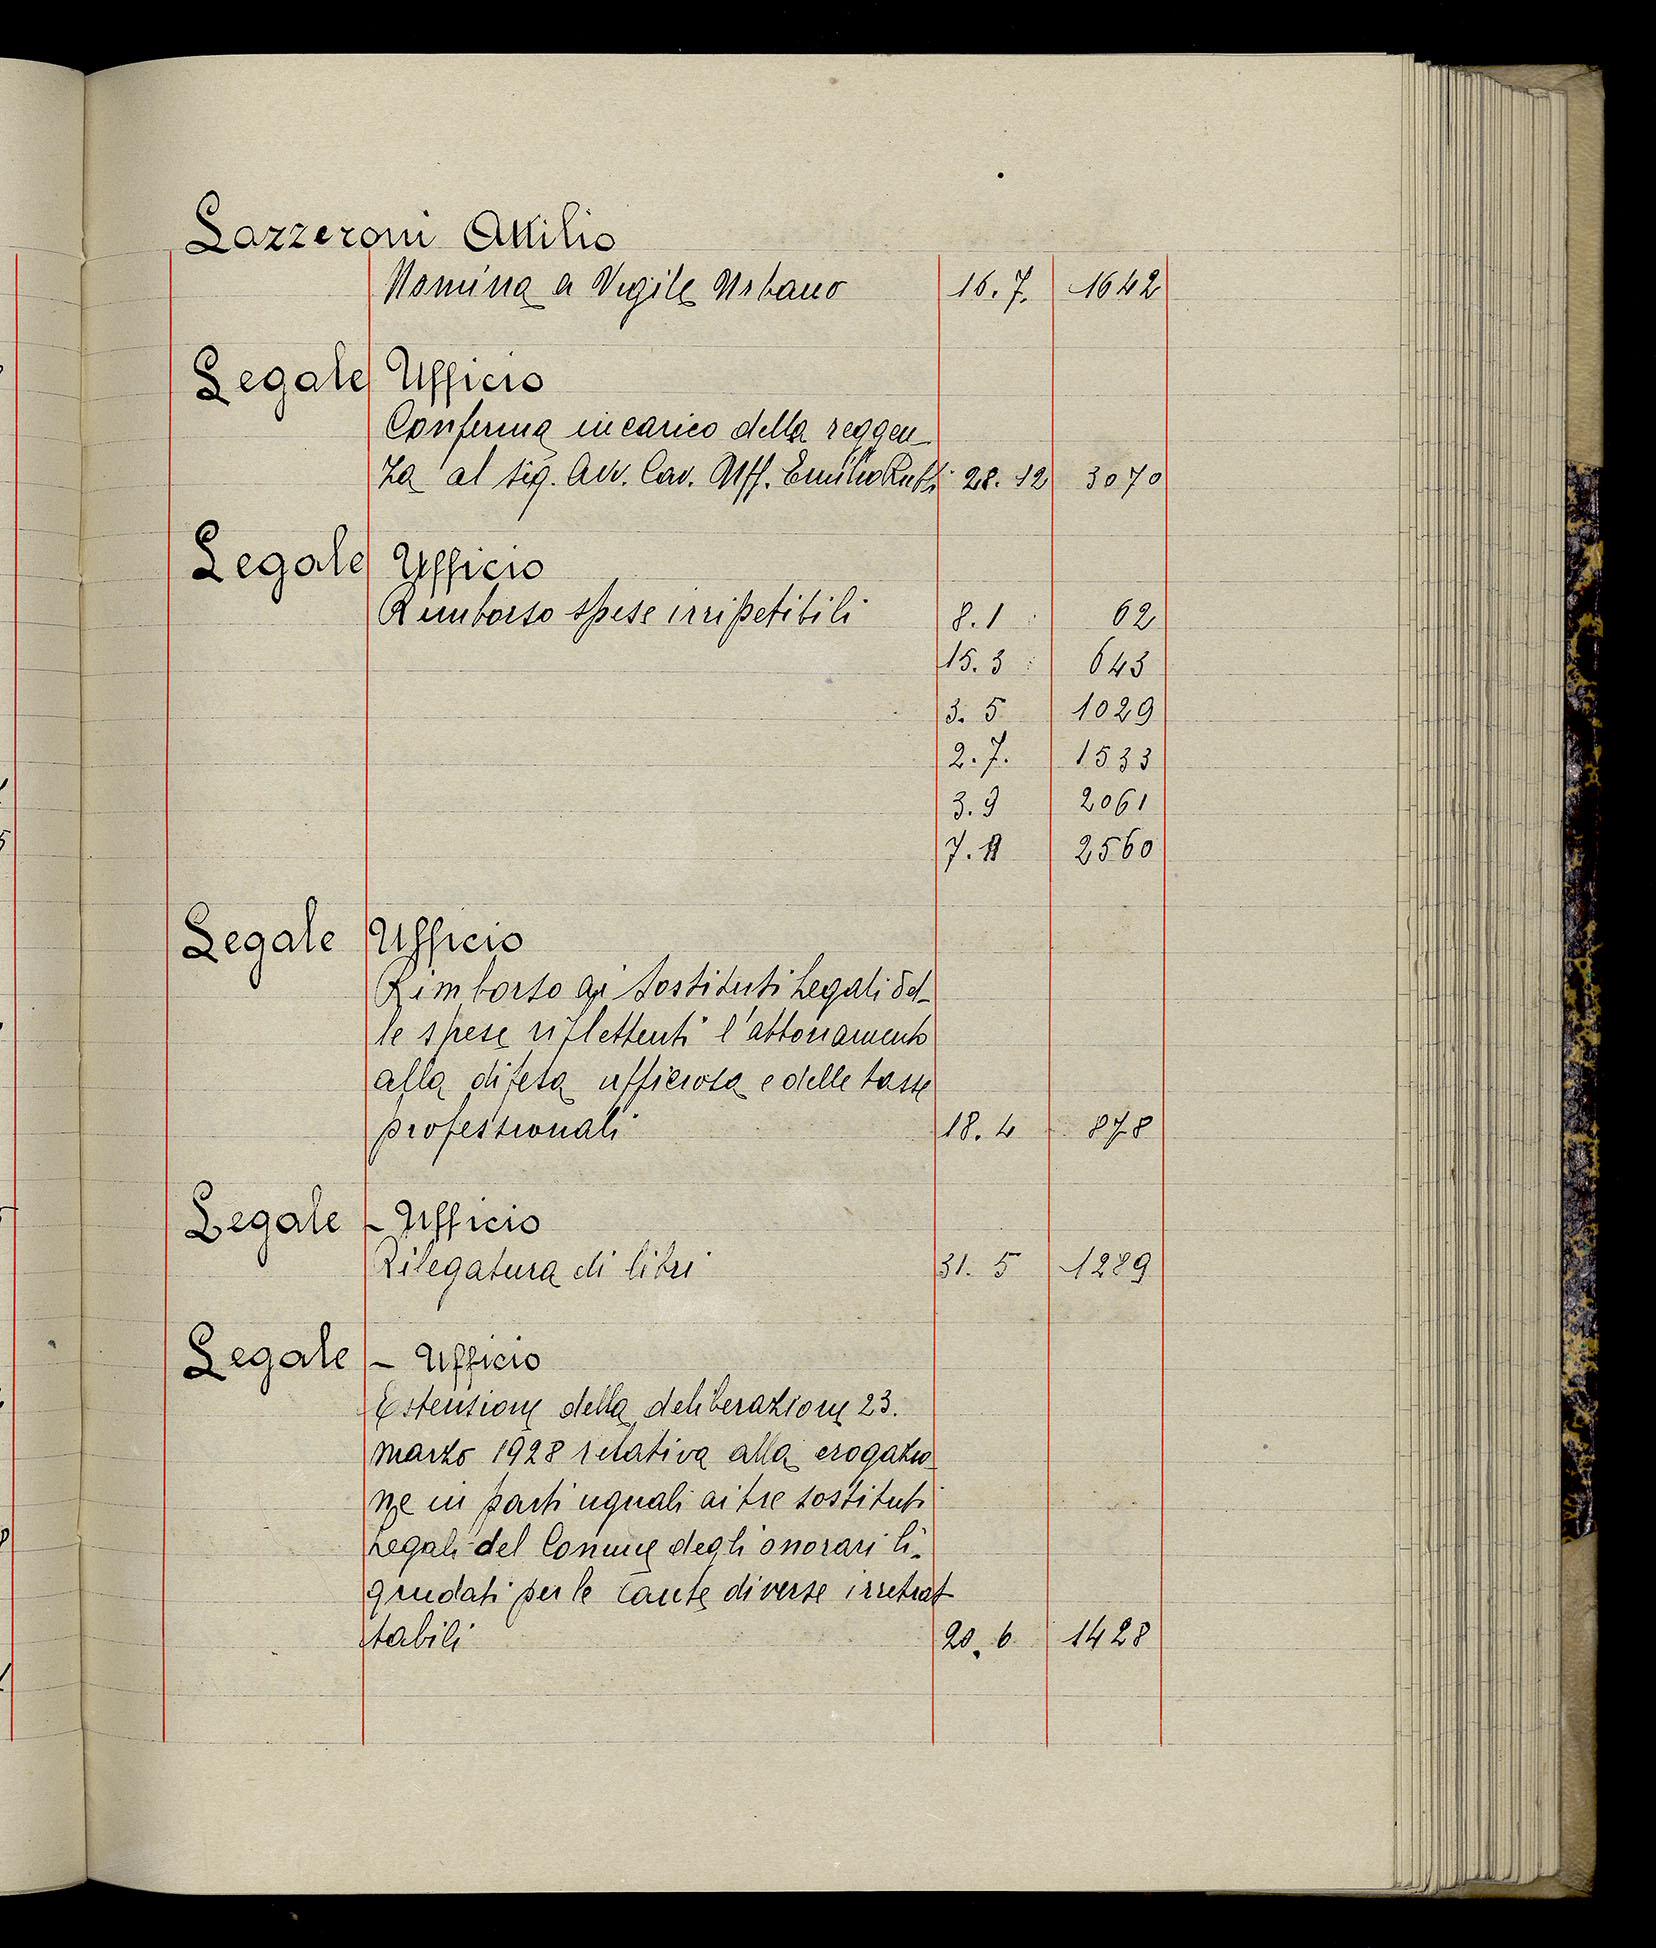 Lazzeroni Attilio
Nomina a Vigile Urbano 16.7. 1642
Legale Ufficio
Conferma incarico della reggen-
za al sig. Avv. Cav. Uff. Emilio 28.12 3070
Legale Ufficio
Rimborso spese irripetibili 8.1 62
15.3 643
3.5 1029
2.7. 1533
3.9 2061
7.11 2560
Legale Ufficio
Rimborso ai Sostituti Legali del-
le spese riflettenti l'abbonamento
alla difesa ufficiosa e delle tasse
professionali 18.4 878
Legale - Ufficio
Rilegatura di libri 31.5 1289
Legale - Ufficio
Estensione della deliberazione 23.
marzo 1928 relativa alla erogazio-
ne in parti uguali ai tre sostituti
Legali del Comune degli onorari li-
quidati per le cause diverse irretrat
tabili 20.6 1428